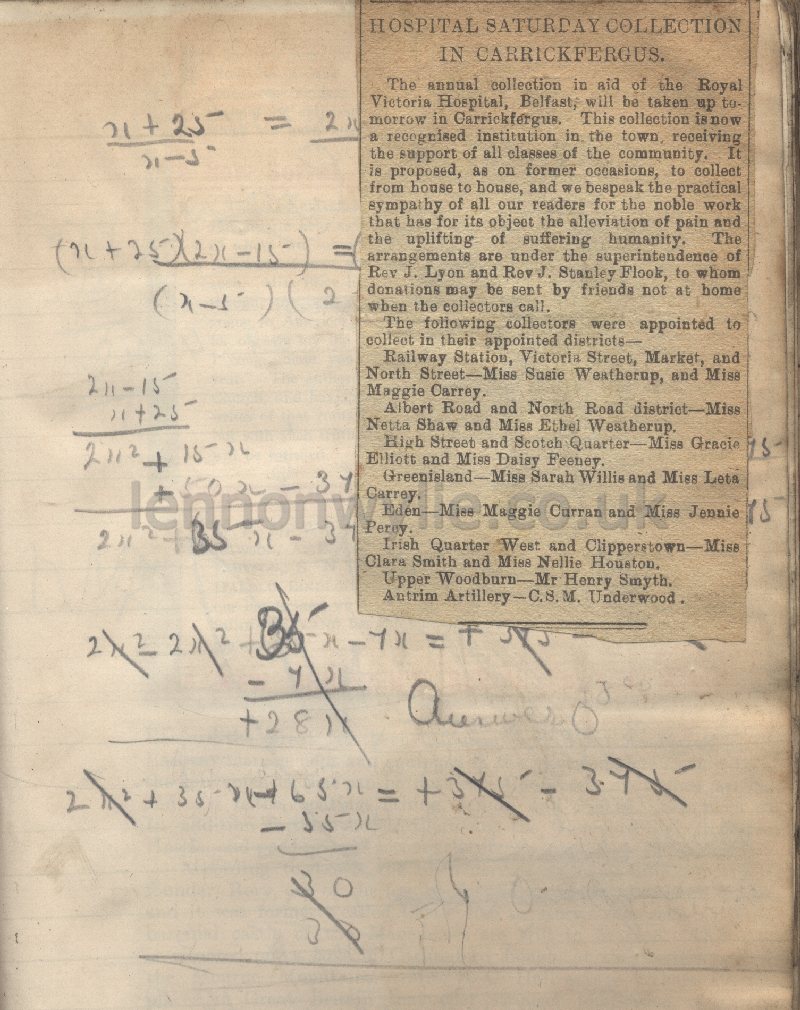 HOSPITAL SATURDAY COLLECTION
IN CARRICKFERGUS.
The annual collection in aid of the Royal
Victoria Hospital, Belfast, will be taken up to-
morrow in Carrickfergus. This collection is now
a recognised institution in the town, receiving
the support of all classes of the community. It
is proposed, as on former occasions, to collect
from house to house, and we bespeak the practical
sympathy of all our readers for the noble work
that has for its object the alleviation of pain and
the uplifting of suffering humanity. The
arrangements are under the superintendence of
Rev J. Lyon and Rev J. Stanley Flook, to whom
donations may be sent by friends not at home
when the collectors call.
The following collectors were appointed to
collect in their appointed districts—
Railway Station, Victoria Street, Market, and
North Street—Miss Susie Weatherup, and Miss
Maggie Carrey.
Albert Road and North Road district—Miss
Netta Shaw and Miss Ethel Weatherup.
High Street and Scotch Quarter—Miss Gracie
Elliott and Miss Daisy Feeney.
Greenisland—Miss Sarah Willis and Miss Leta
Carrey.
Eden—Miss Maggie Curran and Miss Jennie
Percy.
Irish Quarter West and Clipperstown—Miss
Clara Smith and Miss Nellie Houston.
Upper Woodburn—Mr Henry Smyth.
Antrim Artillery—C.S.M. Underwood.
x + 25 = 2x
x - 5
(x + 25)(2x - 15) = (
(x - 5) (2
2x - 15
x + 25
2x² + 15x
+ 50x - 37
2x² + 35x - 37
2x² - 2x² + 35x - 7x = + 375 -
- 7x
+28x
Answer 0
2x² + 35x + 65x = + 375 - 375
- 35x
30
30
lennonwylie.co.uk